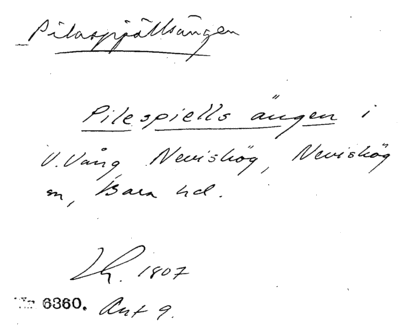 Pilaspjällsängen
Pilespiells ängen i
V. Vång, Nevishög, Nevishög
sn, Bara hd.
1807
Nr 6360. Akt 9.